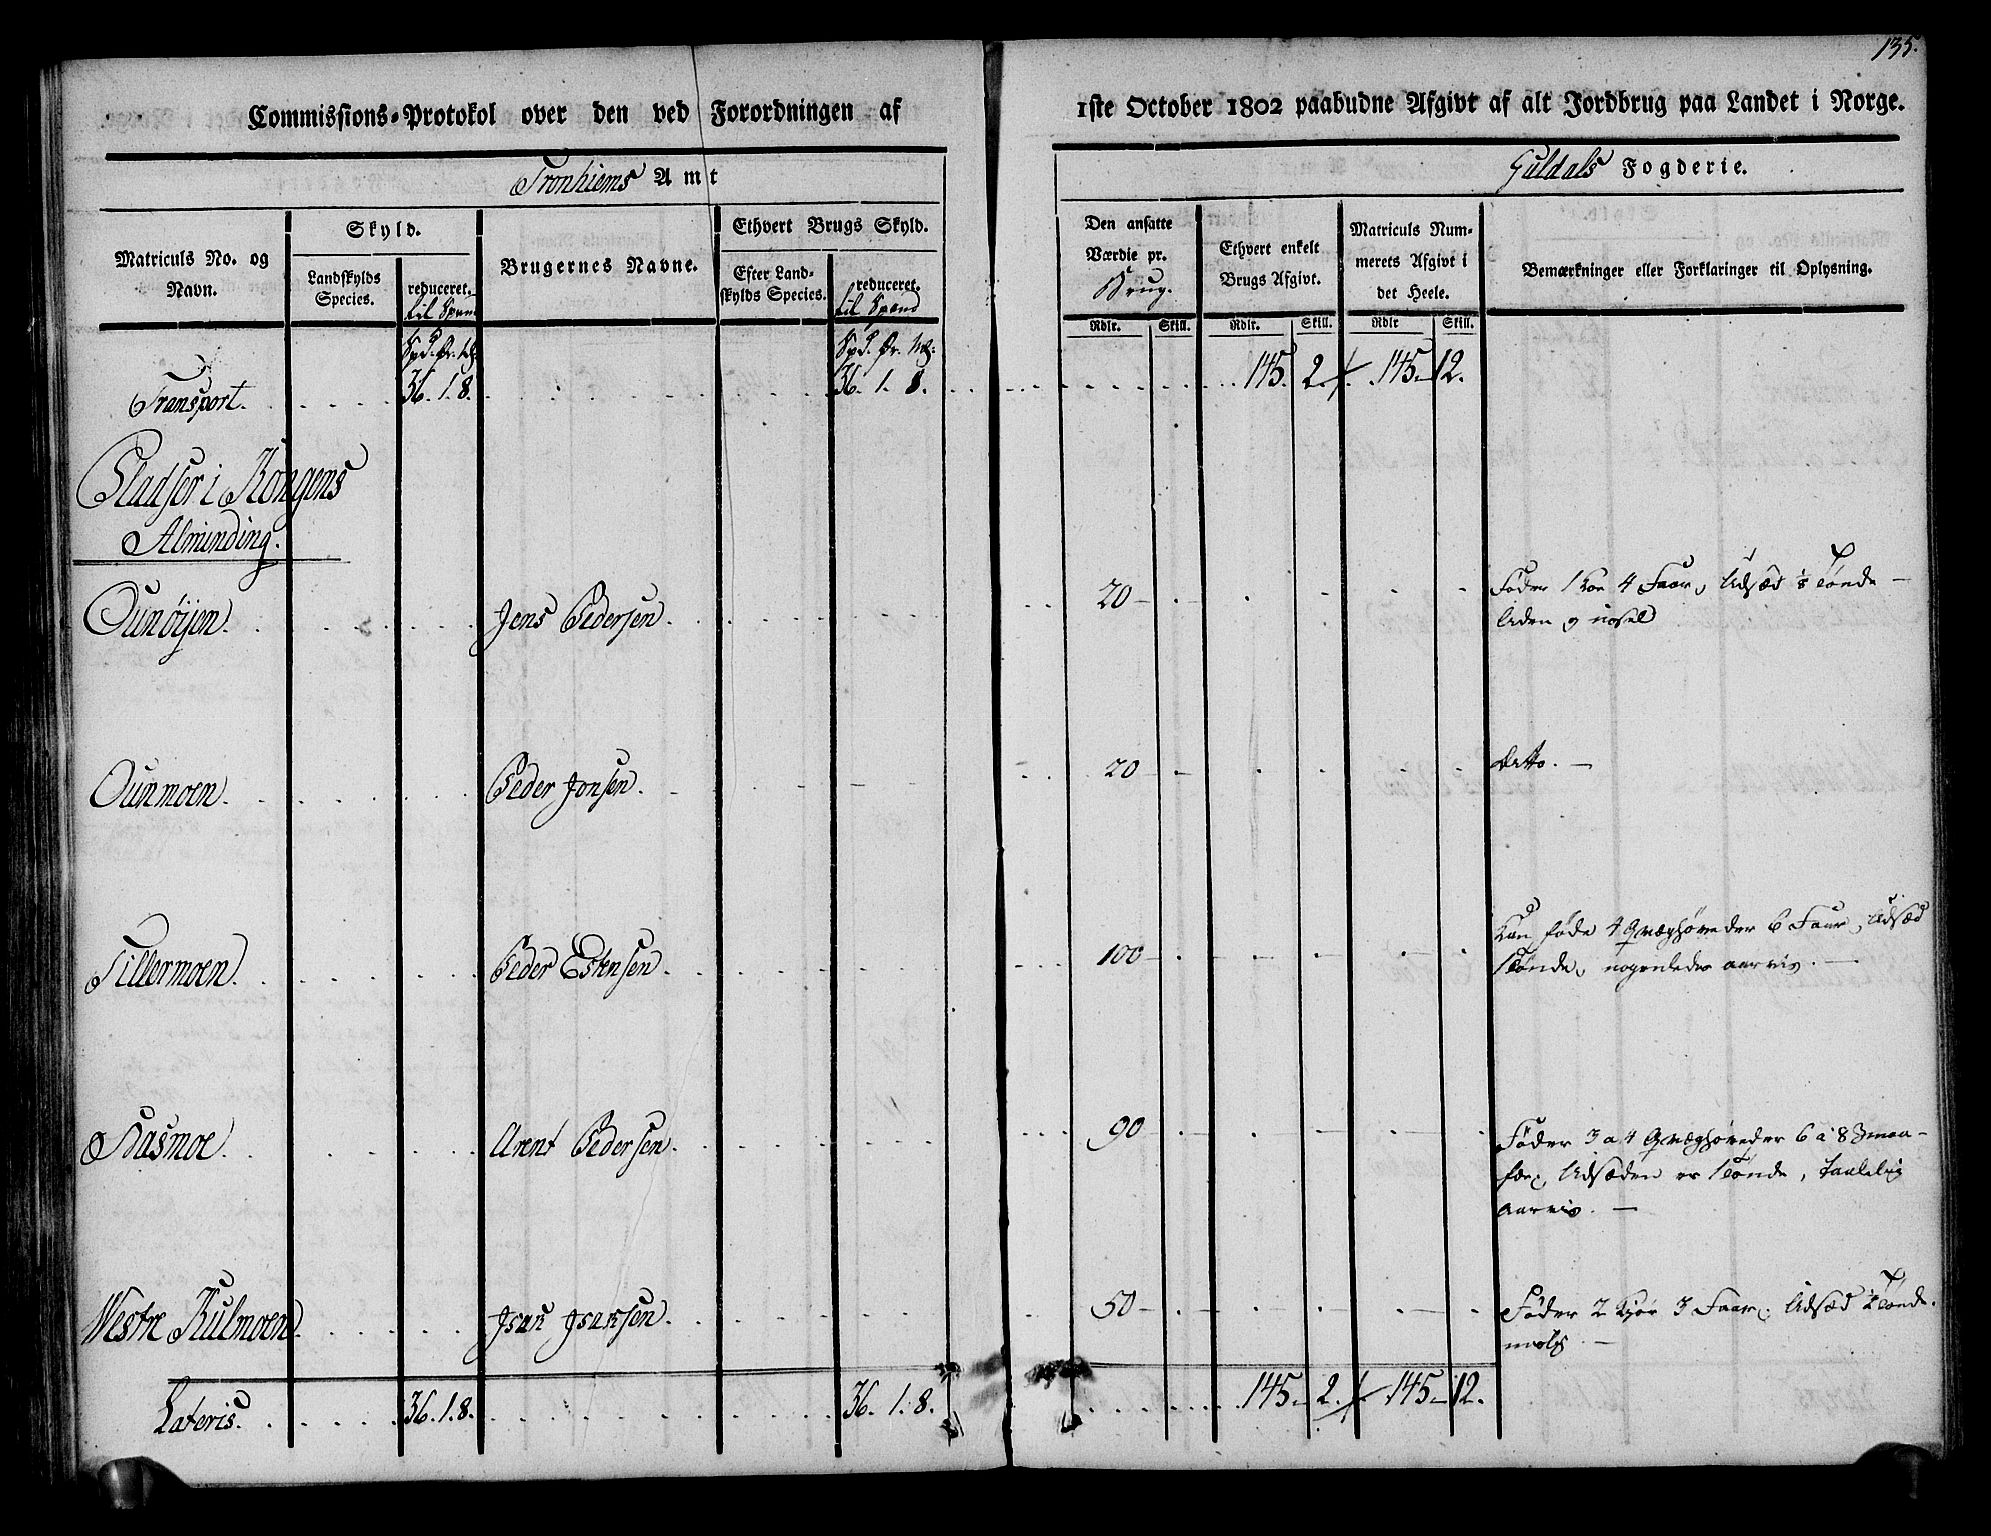 135.
Commissions-Protokol over den ved Forordningen af 1ste October 1802 paabudne Afgivt af alt Jordbrug paa Landet i Norge.
Tronhiems Amt
Guldals Fogderie.
Matriculs No. og Navn.
Skyld.
Landskylds Species.
reduceret til Spand
Brugernes Navne.
Ethvert Brugs Skyld.
Efter Landskylds Species.
reduceret. til Spand
Den ansatte Værdie pr. Brug.
Ethvert enkelt Brugs Afgivt.
Matriculs Nummerets Afgivt i det Heele.
Bemærkninger eller Forklaringer til Oplysning.
Rdlr. Skill. Rdlr. Skill. Rdlr Skill.
Spd. Ør. Mkl. Spd. Ør. Mkl:
Transport. 36. 1. 8. 36. 1. 8. 145. 2. 145. 12.
Pladser i Kongens
Alminding.
Ounøijen. Jens Pedersen 20 Føder 1 Koe 4 Faar, Udsæd 1/2 Tønde —
liden og ussel
Ounmoen. Peder Jonsen. 20 Ditto. —
Tillermoen. Peder Estensen 100 Kan føde 4 Qvæghøveder 6 Faar, Udsæd
1 Tønde, nogenledes aarvis. —
Aasmoe. Arent Pedersen. 90 Føder 3 a 4 Qvæghøveder 6 a 8 Smaa-
fæe, Udsæden er 1 Tønde, taalelig
aarvis. —
Westre Kulmoen. Isak Isaksen. 50 Føder 2 Kjør 3 Faar, Udsæd 1/2 Tønde.
Lateris. 36. 1. 8. 36. 1. 8. 145. 2. 145. 12.